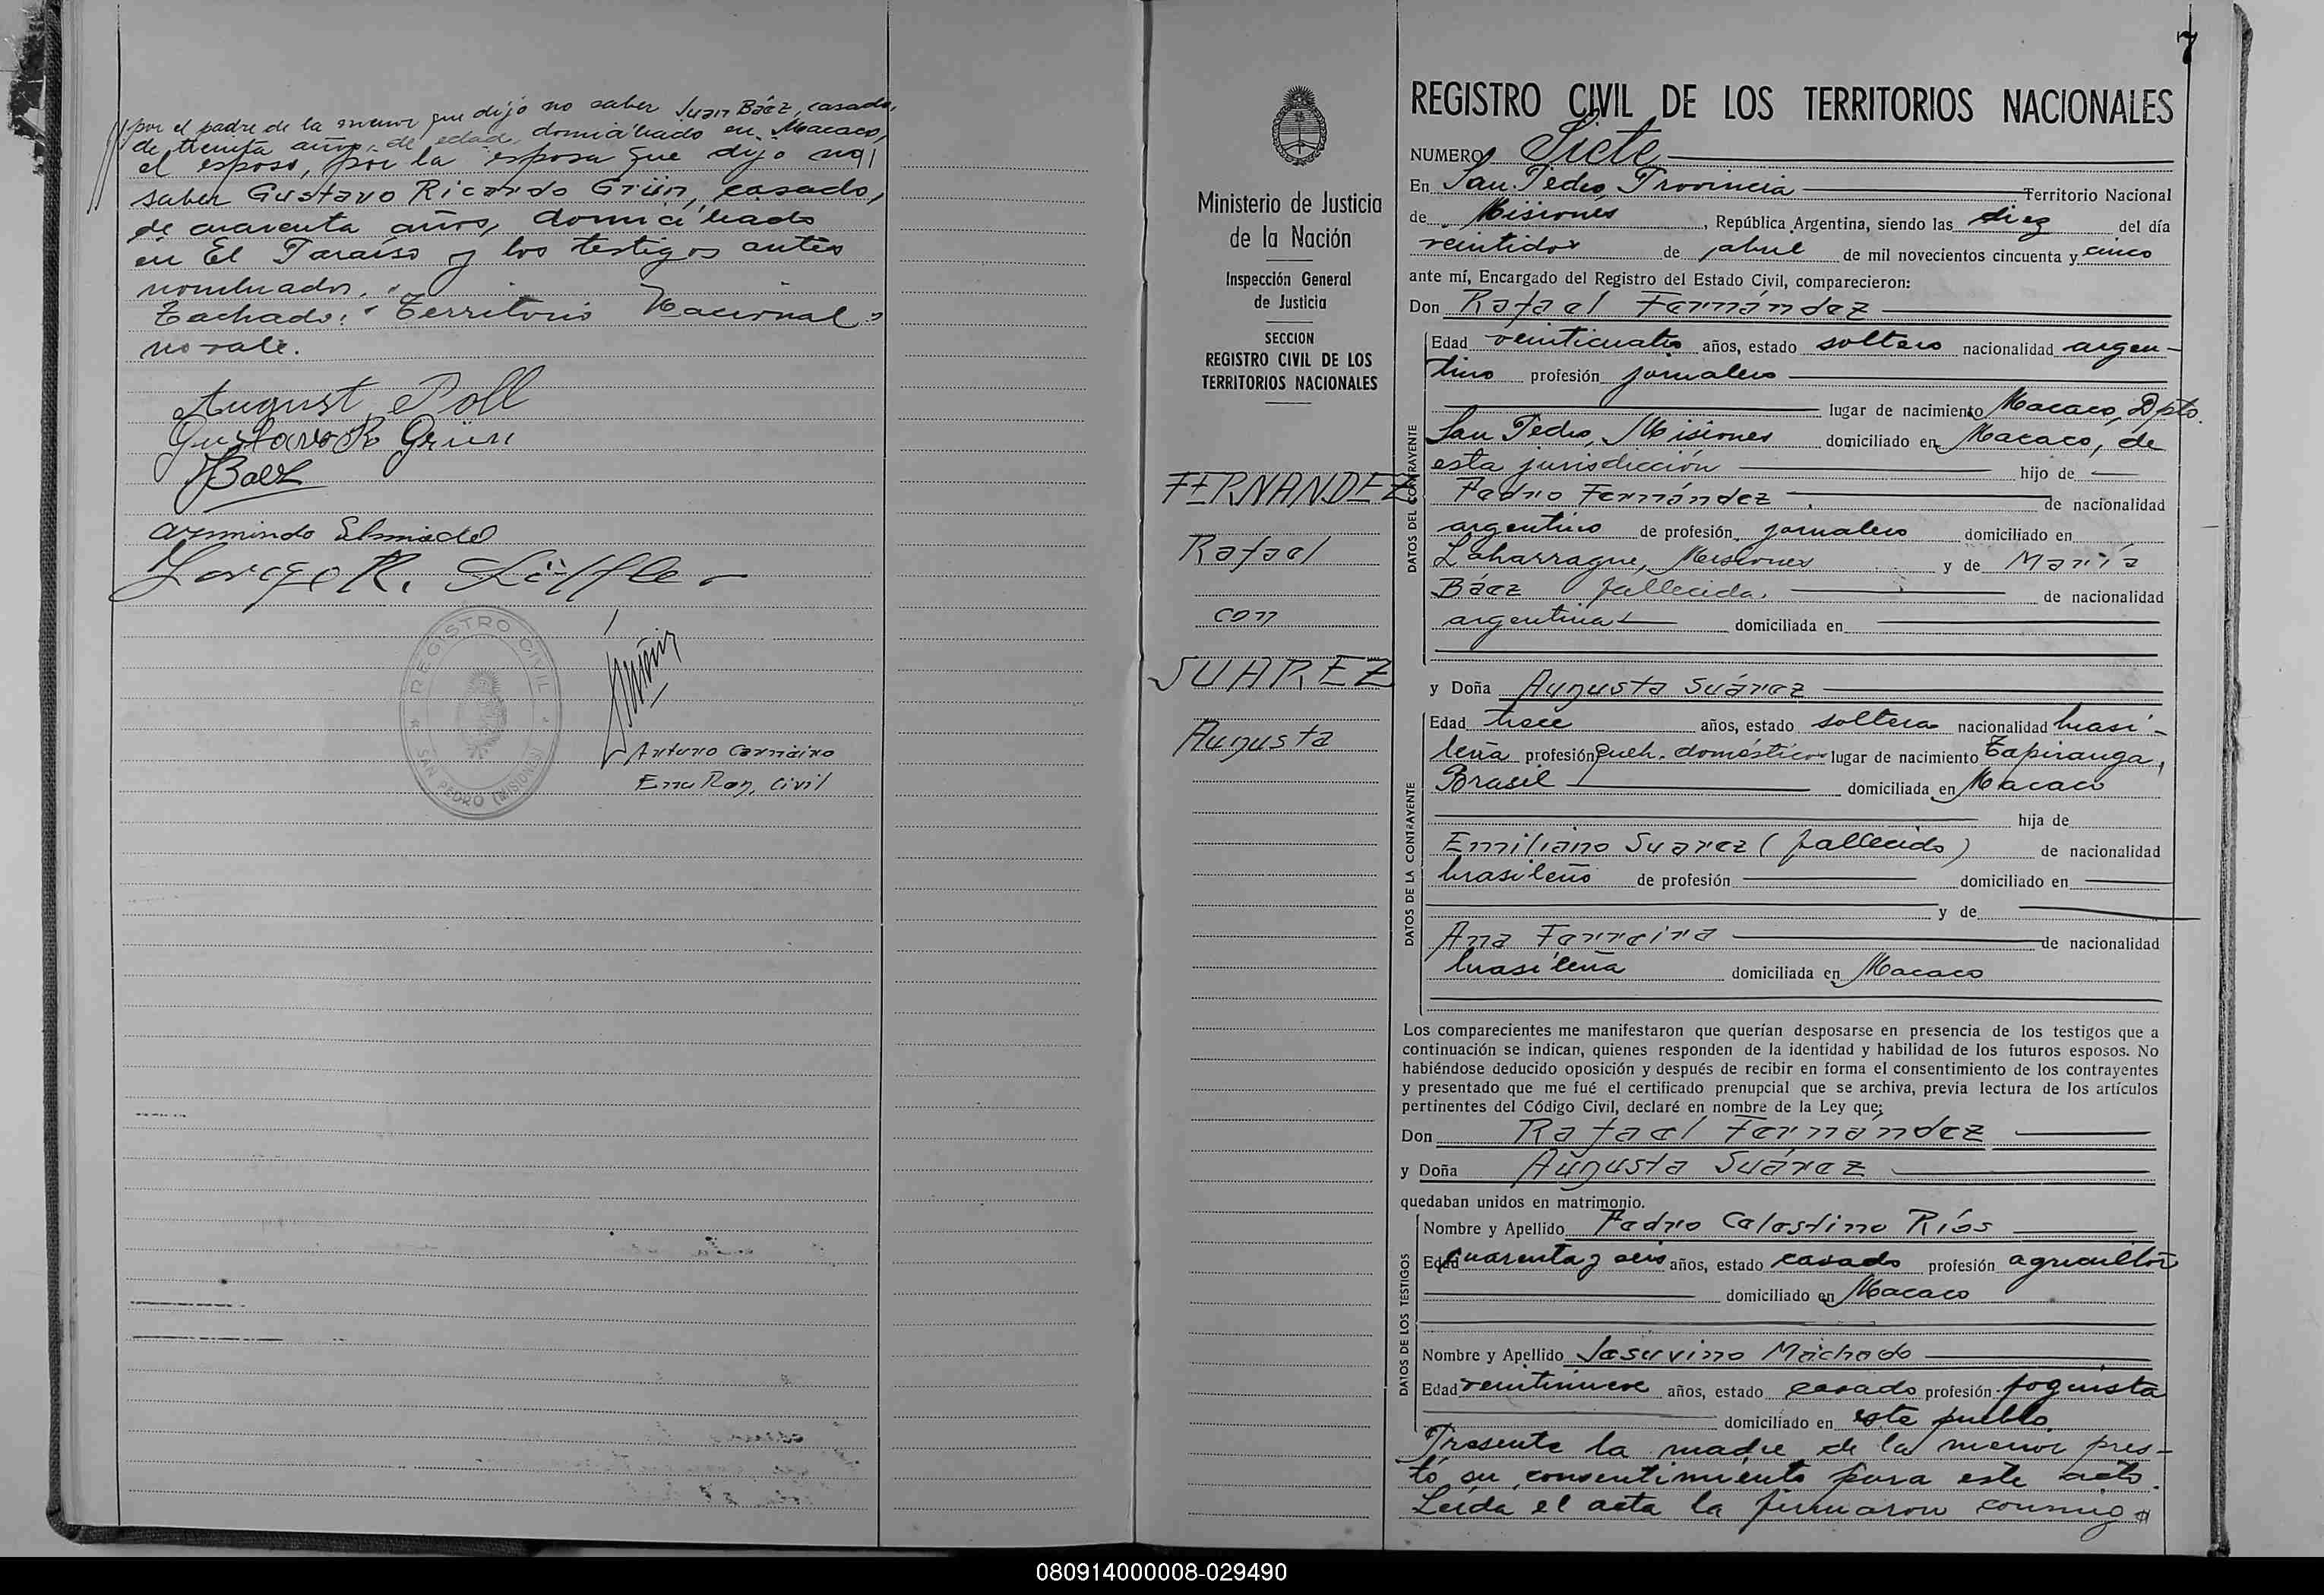 por el padre de la menor que dijo no saber Juan Báez, casado,
de treinta años de edad, domiciliado en Macaco,
el esposo, por la esposa que dijo no
saber Gustavo Ricardo Grün, casado,
de cuarenta años, domiciliado
en El Paraíso y los testigos antes
nombrados.
Tachado: "Territorio Nacional"
no vale.
August Poll
Gustavo R Grün
JBaez
Armindo Schmidel
Jorge R. Löffler
REGISTRO CIVIL
SAN PEDRO (MISIONES)
Arturo Carneiro
Enc. Reg. Civil
7
Ministerio de Justicia
de la Nación
Inspección General
de Justicia
SECCION
REGISTRO CIVIL DE LOS
TERRITORIOS NACIONALES
FERNANDEZ
Rafael
con
SUAREZ
Augusta
REGISTRO CIVIL DE LOS TERRITORIOS NACIONALES
NUMERO Siete
En San Pedro, Provincia Territorio Nacional
de Misiones, República Argentina, siendo las diez del día
veintidos de abril de mil novecientos cincuenta y cinco
ante mí, Encargado del Registro del Estado Civil, comparecieron:
Don Rafael Fernández
DATOS DEL CONTRAYENTE
Edad veinticuatro años, estado soltero nacionalidad argen-
tino profesión jornalero
lugar de nacimiento Macaco, Dpto.
San Pedro, Misiones domiciliado en Macaco, de
esta jurisdicción hijo de
Pedro Fernández de nacionalidad
argentino de profesión jornalero domiciliado en
Laharrague, Misiones y de María
Báez fallecida, de nacionalidad
argentina domiciliada en
y Doña Augusta Suárez
DATOS DE LA CONTRAYENTE
Edad trece años, estado soltera nacionalidad brasi-
leña profesión queh. domésticos lugar de nacimiento Tapiranga,
Brasil domiciliada en Macaco
hija de
Emiliano Suarez (fallecido) de nacionalidad
brasileño de profesión domiciliado en
y de
Ana Ferreira de nacionalidad
brasileña domiciliada en Macaco
Los comparecientes me manifestaron que querían desposarse en presencia de los testigos que a
continuación se indican, quienes responden de la identidad y habilidad de los futuros esposos. No
habiéndose deducido oposición y después de recibir en forma el consentimiento de los contrayentes
y presentado que me fué el certificado prenupcial que se archiva, previa lectura de los artículos
pertinentes del Código Civil, declaré en nombre de la Ley que:
Don Rafael Fernández
y Doña Augusta Suárez
quedaban unidos en matrimonio.
DATOS DE LOS TESTIGOS
Nombre y Apellido Pedro Celestino Ríos
Edad cuarenta y seis años, estado casado profesión agricultor
domiciliado en Macaco
Nombre y Apellido Jesuvino Machado
Edad veintinueve años, estado casado profesión foguista
domiciliado en este pueblo
Presente la madre de la menor pres-
tó su consentimiento para este acto.
Leída el acta la firmaron conmigo
080914000008-029490